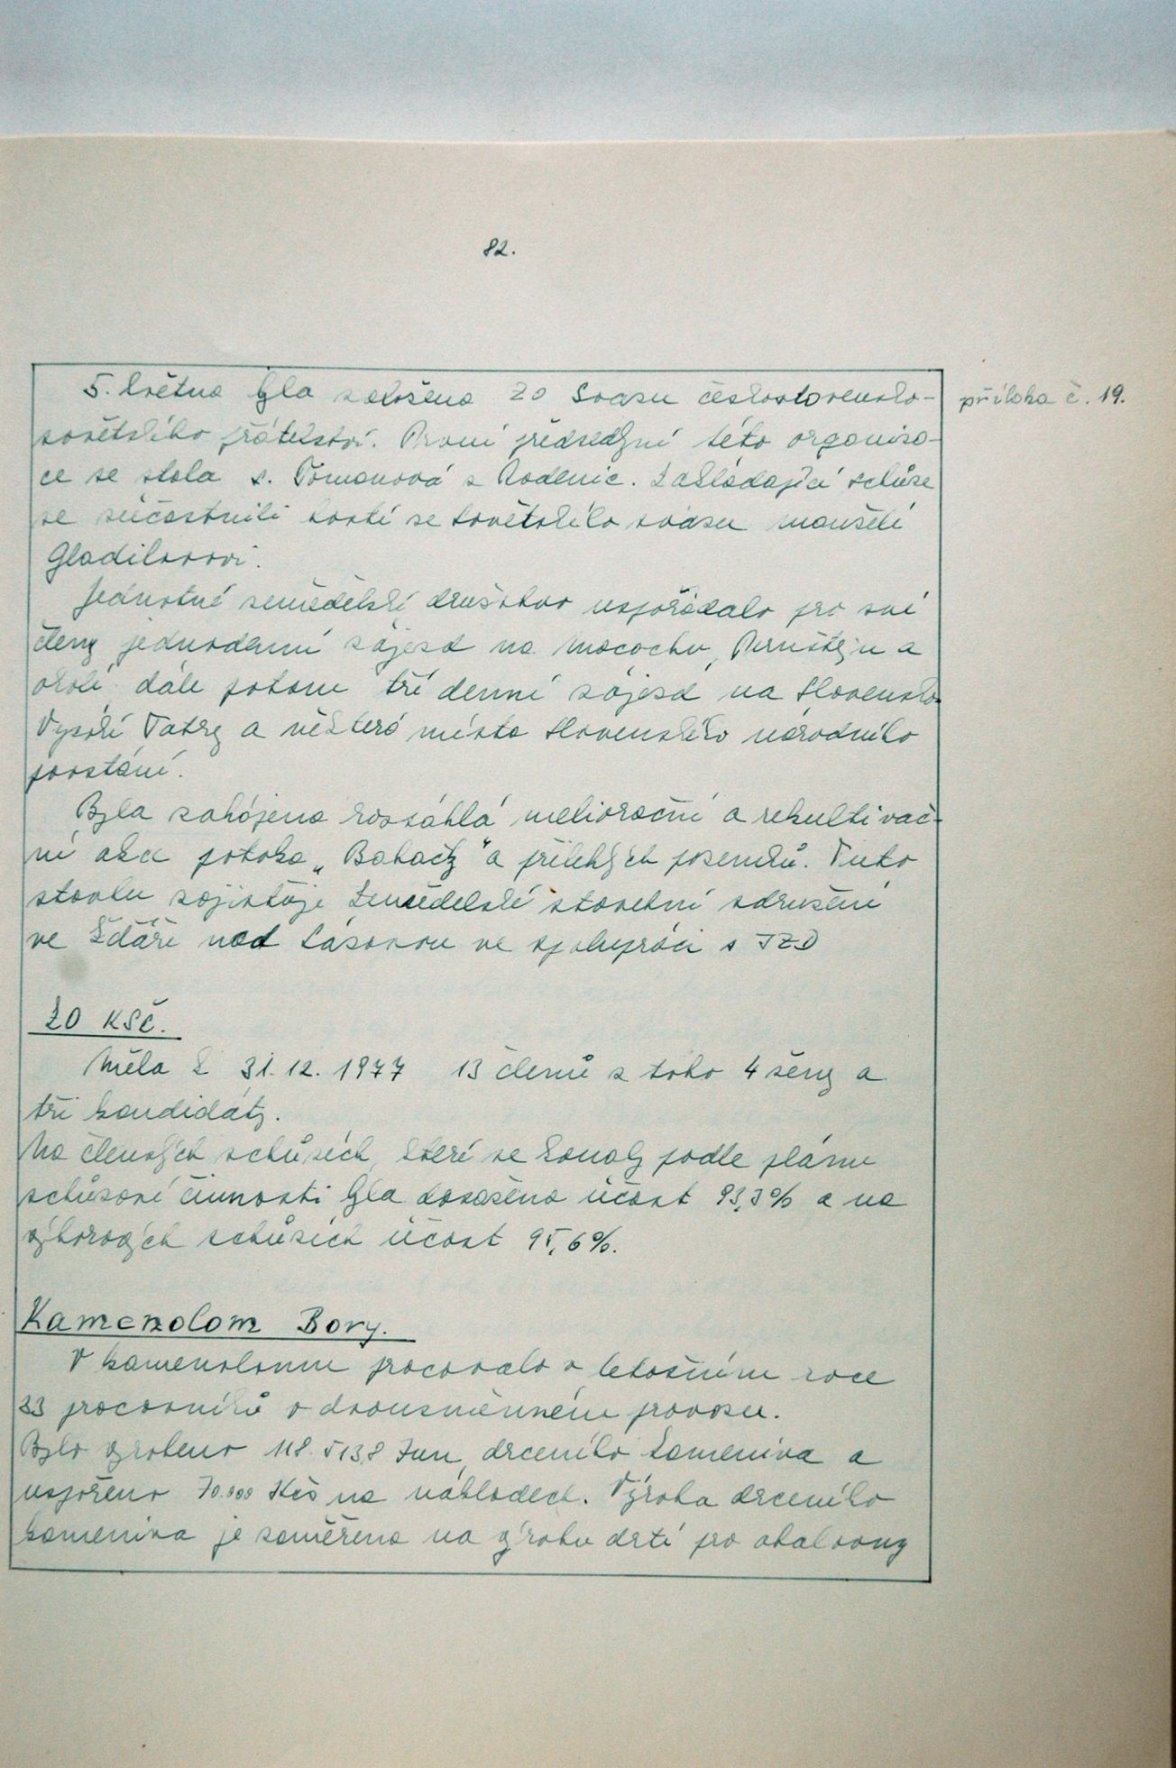 82.
5. května byla založena ZO Svazu československo-
sovětského přátelství. První předsedkyní této organiza-
ce se stala s. Tomanová z Radenic. Zakládající schůze
se súčastnili hosté ze Sovětského svazu manželé
Gladilovovi.
příloha č. 19.
Jednotné zemědělské družstvo uspořádalo pro své
členy jednodenní zájezd na Macochu, Pernštejn a
okolí dále potom tří denní zájezd na Slovensko
Vysoké Tatry a některá místa Slovenského národního
povstání.
Byla zahájena rozsáhlá meliorační a rekultivač-
ní akce potoka „Babačky" a přilehlých pozemků. Tuto
stavbu zajišťuje Zemědělské stavební sdružení
ve Žďáře nad Sázavou ve spolupráci s JZD
ZO KSČ.
Měla k 31. 12. 1977 13 členů z toho 4 ženy a
tři kandidáty.
Na členských schůzích, které se konaly podle plánu
schůzové činnosti byla dosažena účast 93,3% a na
výborových schůzích účast 95,6%.
Kamenolom Bory.
V kamenolomu pracovalo v letošním roce
33 pracovníků v dvousměnném provozu.
Bylo vyrobeno 118 513,8 tun, drceného kameniva a
uspořeno 70.000 Kčs na nákladech. Výroba drceného
kameniva je zaměřena na výrobu drtí pro obalovny